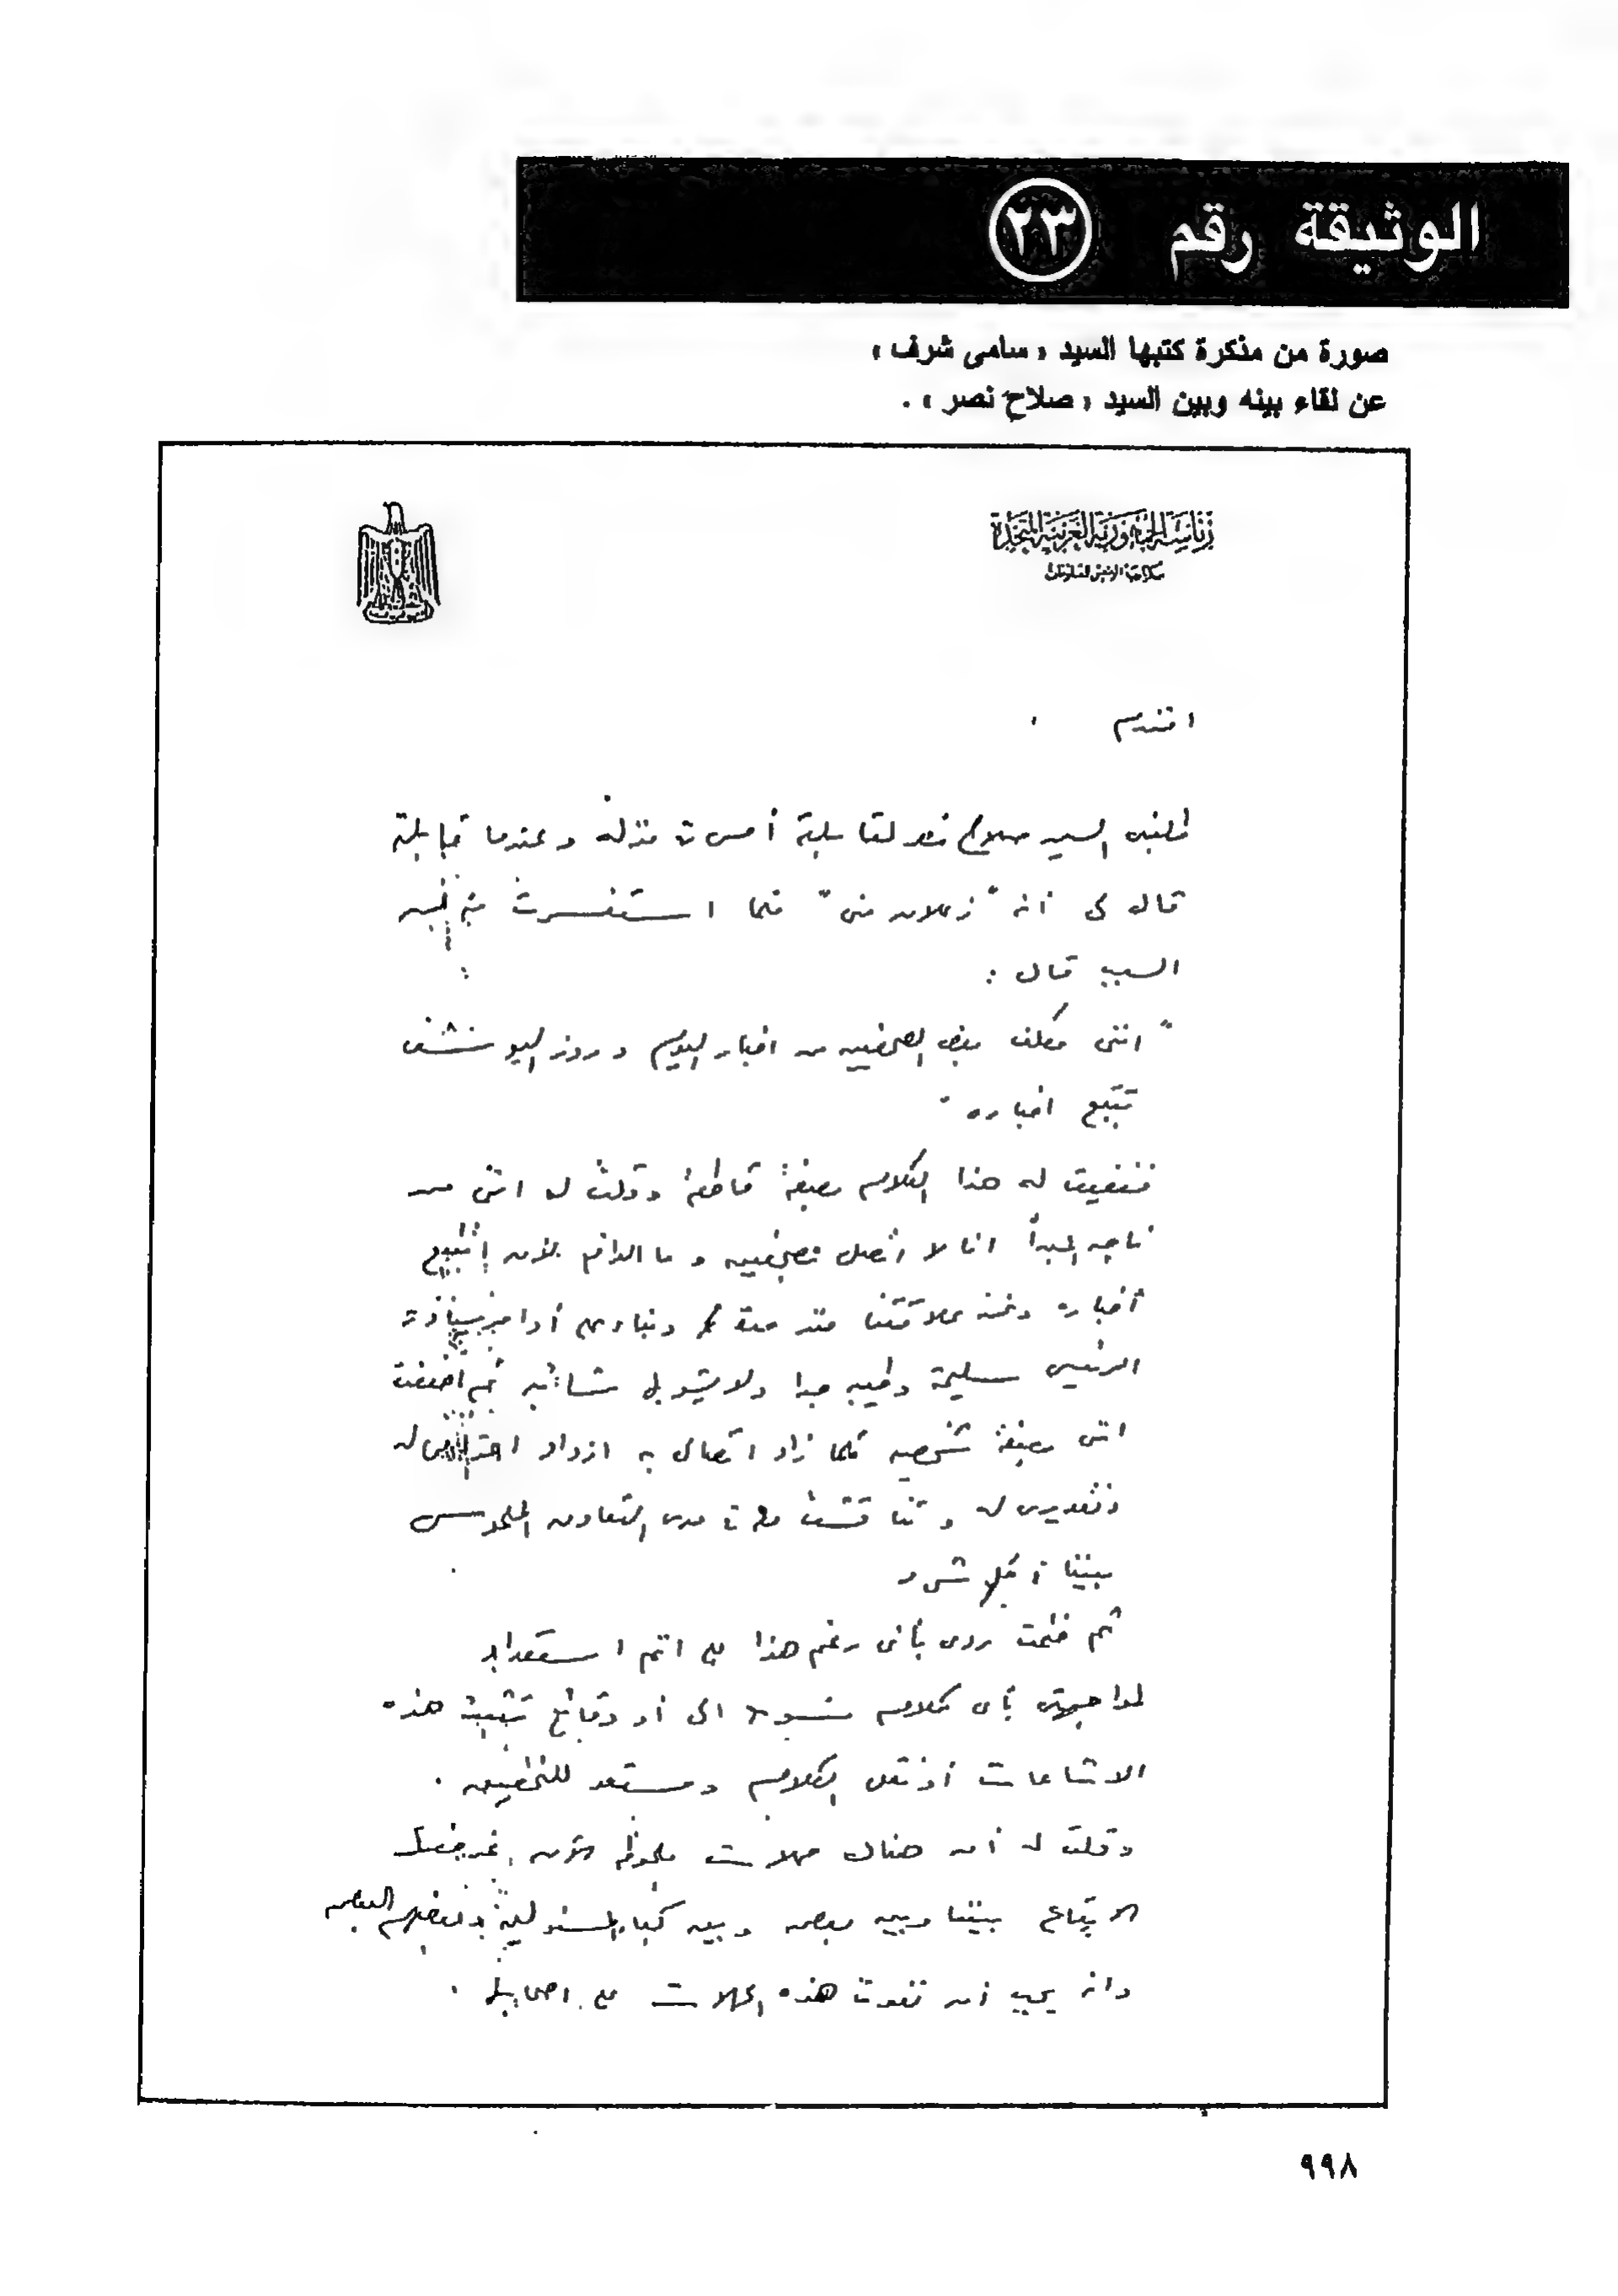 الوثيقة رقم ٢٣
صورة من مذكرة كتبها السيد « سامى شرف »
عن لقاء بينه وبين السيد « صلاح نصر » .
رئاسة الجمهورية العربية المتحدة
مكتب الرئيس للمعلومات
افندم
طلبنى السيد صلاح نصر لمقابلته أمس فى منزله وعندما قابلته
قال لى أنه " زعلان منى " فلما استفسرت منه
السبب قال :
" اننى مكلف بعض الصحفيين من اخبار اليوم وروز اليوسف
تتبع اخباره "
فنفيت له هذا الكلام بصفة قاطعة وقلت له اننى من
ناحية المبدأ انا لا اتصل بصحفيين وما الدافع لأن اتتبع
أخباره ونحن علاقتنا منذ وبناء على أوامر سيادة
الرئيس سليمة وطيبة جدا ولا يشوبها شائبة ثم اضفت
اننى بصفة شخصية كلما زاد اتصالى به ازداد احترامى له
وتقديرى له وتناقشت معه فى مدى التعاون الملموس
بيننا فى كل شىء
ثم ختمت ردى بأنى رغم هذا على اتم استعداد
لمواجهتى بأى كلام منسوب الى أو وقائع تثبت هذه
الاشاعات أو نقل الكلام ومستعد للتحقيق .
وقلت له أن هناك حملات
الايقاع بيننا وبين بعض وبين كبار المسئولين وبعضهم البعض
وانه يجب أن نفوت هذه الحملات على اصحابها .
٩٩٨